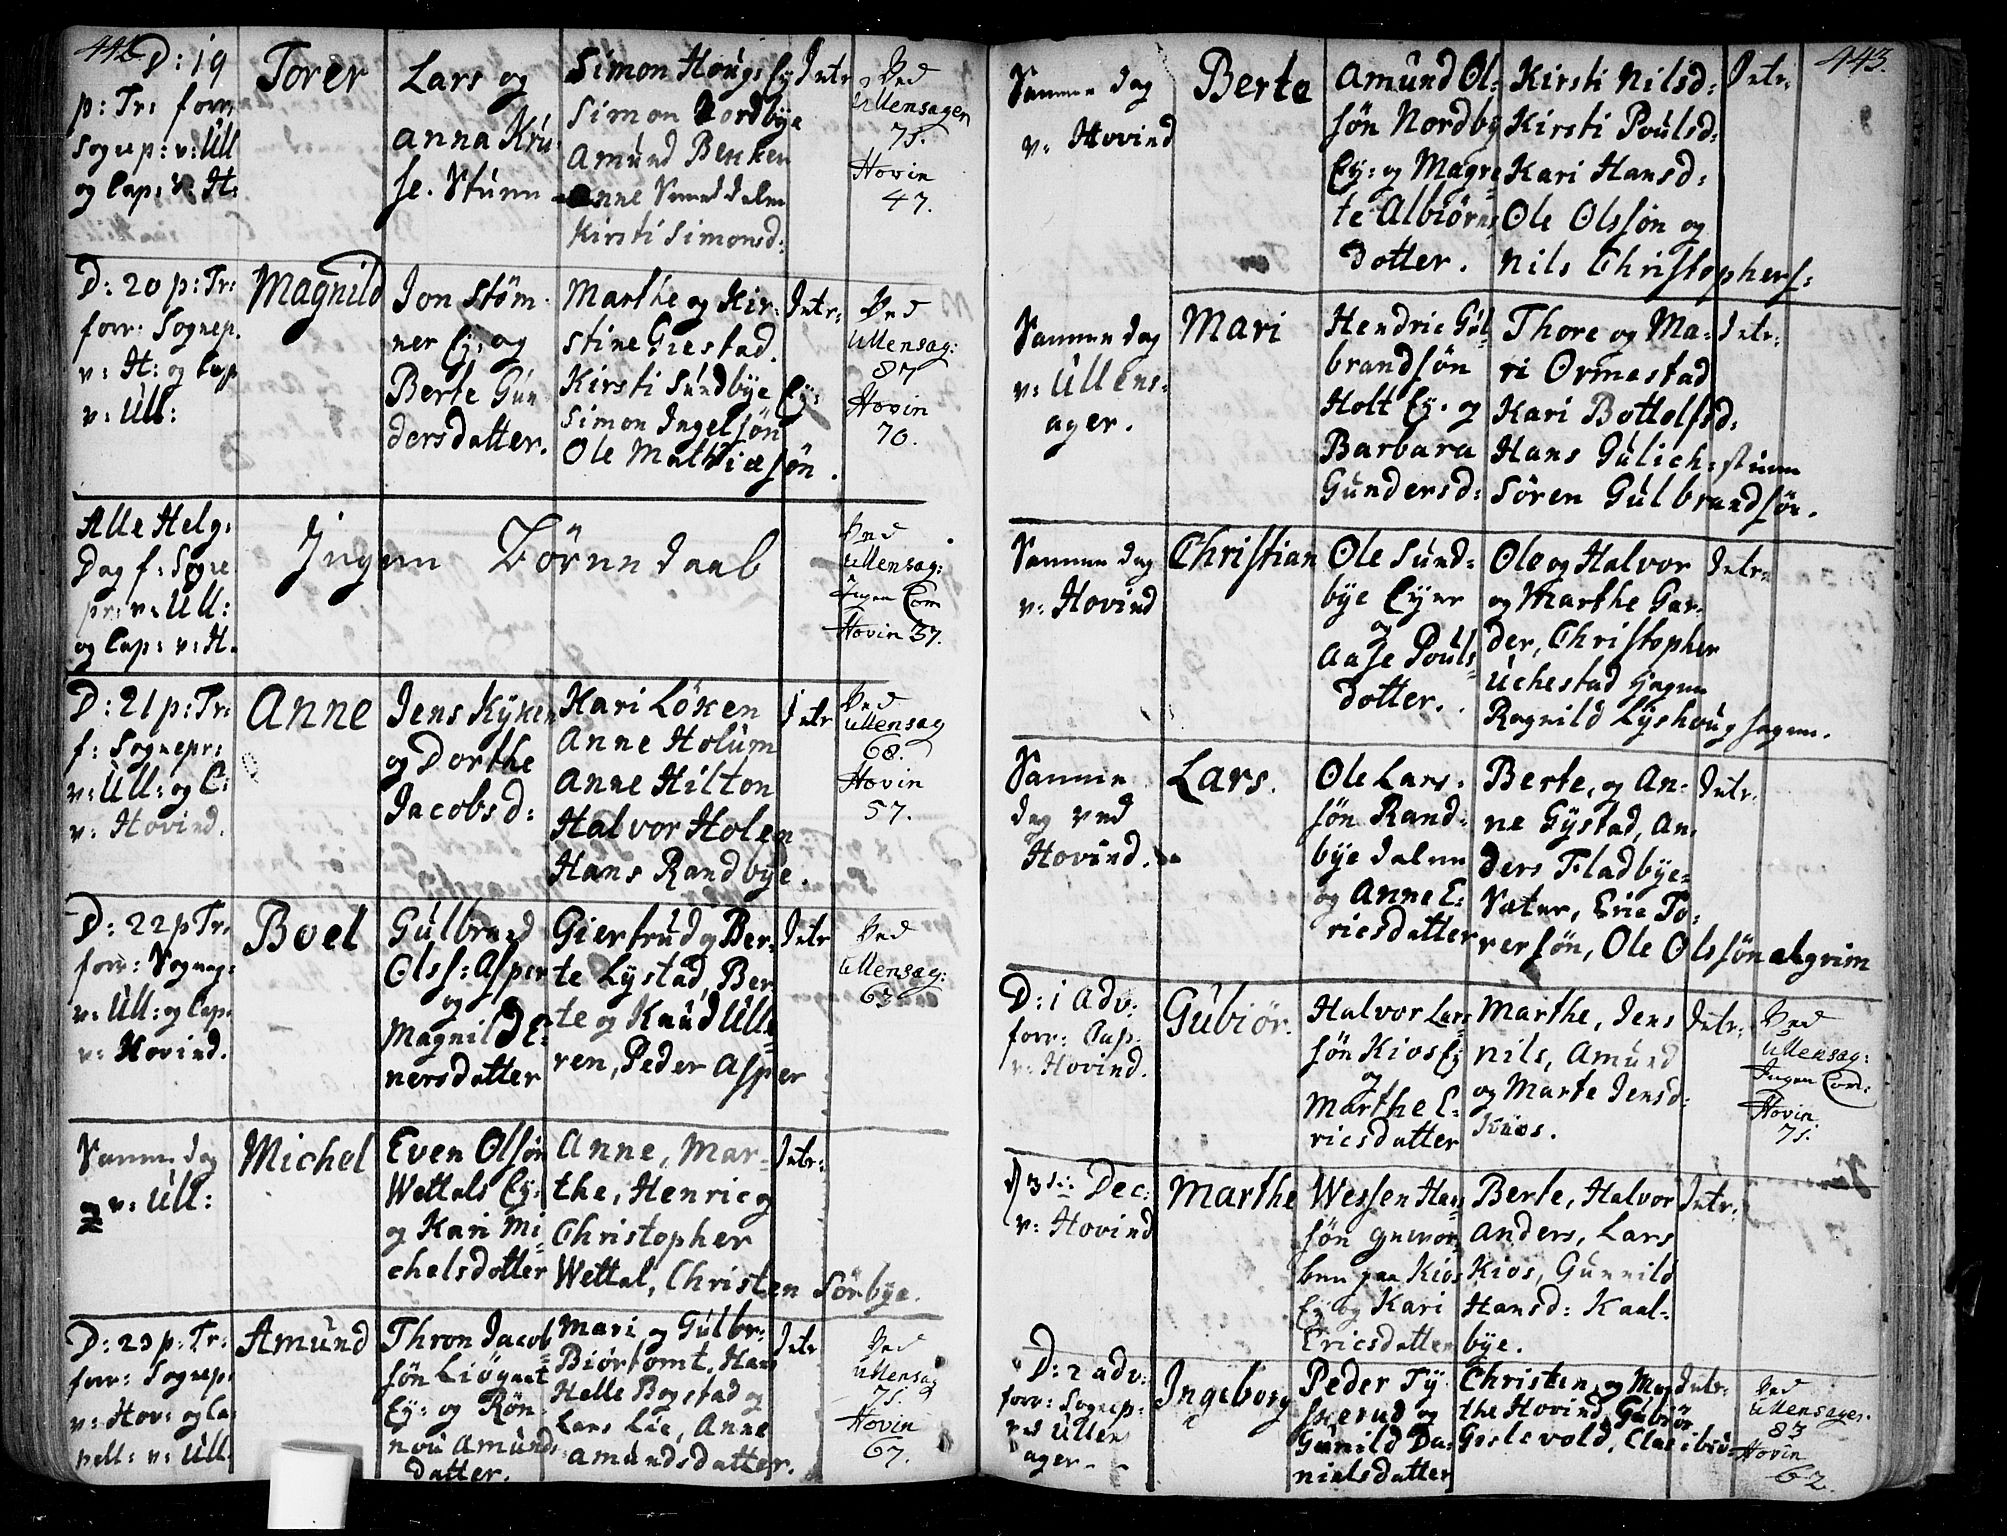 442.
D: 19
p: Tr: forr:
Sognep: v: Ull
og Cap: v: H:
Torer
Lars og
Anna Kru
se. Stuen
Simon Houg Ey
Simon Nordbye
Amund Benken
Anne
Kirsti Simonsd:
Intr
Ved
Ullensager
75.
Hovin
47.
D: 20 p: Tr:
forr: Sognep.
v: H: og Cap
v: Ull:
Magnild
Jon Stöm-
ner Ey: og
Berte Gun
dersdatter.
Marthe og Kir-
stine Giestad.
Kirsti Sundbye Ey:
Simon Ingelsön
Ole Mathiæsön.
Intr:
Ved
Ullensag:
87
Hovin
70.
Alle Helg:
Dag f: Sogne
pr: v: Ull:
og Cap: v: H.
Ingen Börnedaab
Ved
Ullensag:
Ingen Com
Hovin 37.
D: 21 p: Tr:
f: Sognepr:
v: Ull: og C:
v: Hovind.
Anne
Jens Kyken
og Dorthe
Jacobsd:
Kari Löken
Anne Holum
Anne Hilton
Halvor Holen
Hans Randbye.
Intr
Ved
Ullensag
68.
Hovin
57.
D: 22 p Tr:
forr: Sognep:
v: Ull: og Cap.
v: Hovind.
Boel
Gulbrand
Olss: Asper
og
Magnild E-
nersdatter
Giertrud og Ber-
te Lystad, Ber
te og Knud Ull-
ren, Peder Asper
Intr
Ved
Ullensag:
63
Samme dag
og v: Ull:
Michel
Even Olsön
Wettals Ey:
og Kari Mi-
chelsdatter
Anne, Mar-
the, Henric og
Christopher
Wettal, Christen Sörbye.
Intr:
D: 23 p: Tr:
forr: Sognep:
v: Hov: og Ca
pell: v: Ull.
Amund
Thron Jacob
sön Liögnet
Ey: og Rön-
nou Amunds
datter.
Mari og Gulbr:
Biörtomt, Hans
Helle Bogstad og
Lars Lie, Anne
Amundsdatter.
Intr
Ved
Ullensag
75.
Hovin
67.
443.
Samme dag
v: Hovind
Berte
Amund Ol-
sön Nordby
Ey: og Magre-
te Albiörns
dotter.
Kirsti Nilsd:
Kirsti Poulsd:
Kari Hansd:
Ole Olssön og
Nils Christophers:
Intr:
Samme dag
v: Ullens-
ager.
Mari
Hendric Gul-
brandsön
Holt Ey. og
Barbara
Gundersd:
Thore og Ma-
ri Ormestad
Kari Bottolfsd:
Hans Gulich: stuen
Sören Gulbrandsön.
Intr:
Samme dag
v: Hovind
Christian
Ole Sund-
bye Eyer
og
Aase Pouls-
dotter.
Ole og Halvor
og Marthe Gar-
der, Christopher
Uchestad
Ragnild Lyshoug
Intr:
Samme
dag ved
Hovind.
Lars.
Ole Lars-
sön Rand-
bye dalen
og Anne E-
ricsdatter
Berte, og An-
ne Gystad, An-
ders Fladbye-
Sæter, Eric To-
rersön, Ole Olssön Algrim
Intr:
D: 1 Adv:
forr: Cap.
v: Hovind.
Gubiör.
Halvor Lars
sön Kios Ey
og
Marthe E-
ricsdatter
Marthe, Jens
Nils, Amund
og Marte Jensd:
Kios.
Intr:
Ved
Ullensag:
Ingen Com:
Hovin
75.
Dec:
v: Hovind
Marthe
Wessen Han
sön
ben paa Kios
Ey og Kari
Ericsdatter
Berte, Halvor
Anders, Lars
Kios, Gunnild
Hansd: Kaal-
bye.
Intr:
D: 2 adv:
forr: Sognep:
ved Ullens
ager.
Ingeborg
Peder Ty
skerud og
Gunild Da-
nielsdatter
Christen, og Mar
the Hovind, Gubiör
Gislevold,
Intr:
Ved
Ullensager.
83
Hovin
62.